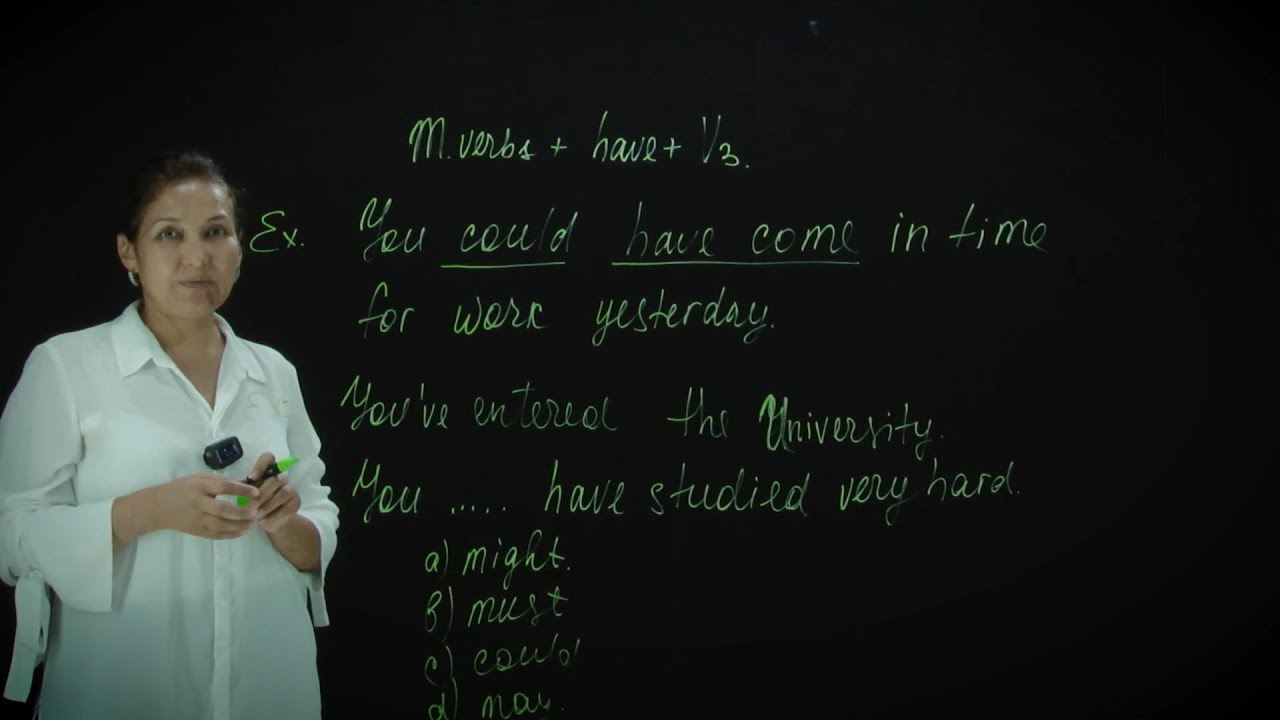 M. verbs + have + V3.
Ex. You could have come in time
for work yesterday.
You've entered the University.
You ..... have studied very hard.
a) might.
b) must
c) could
d) may.